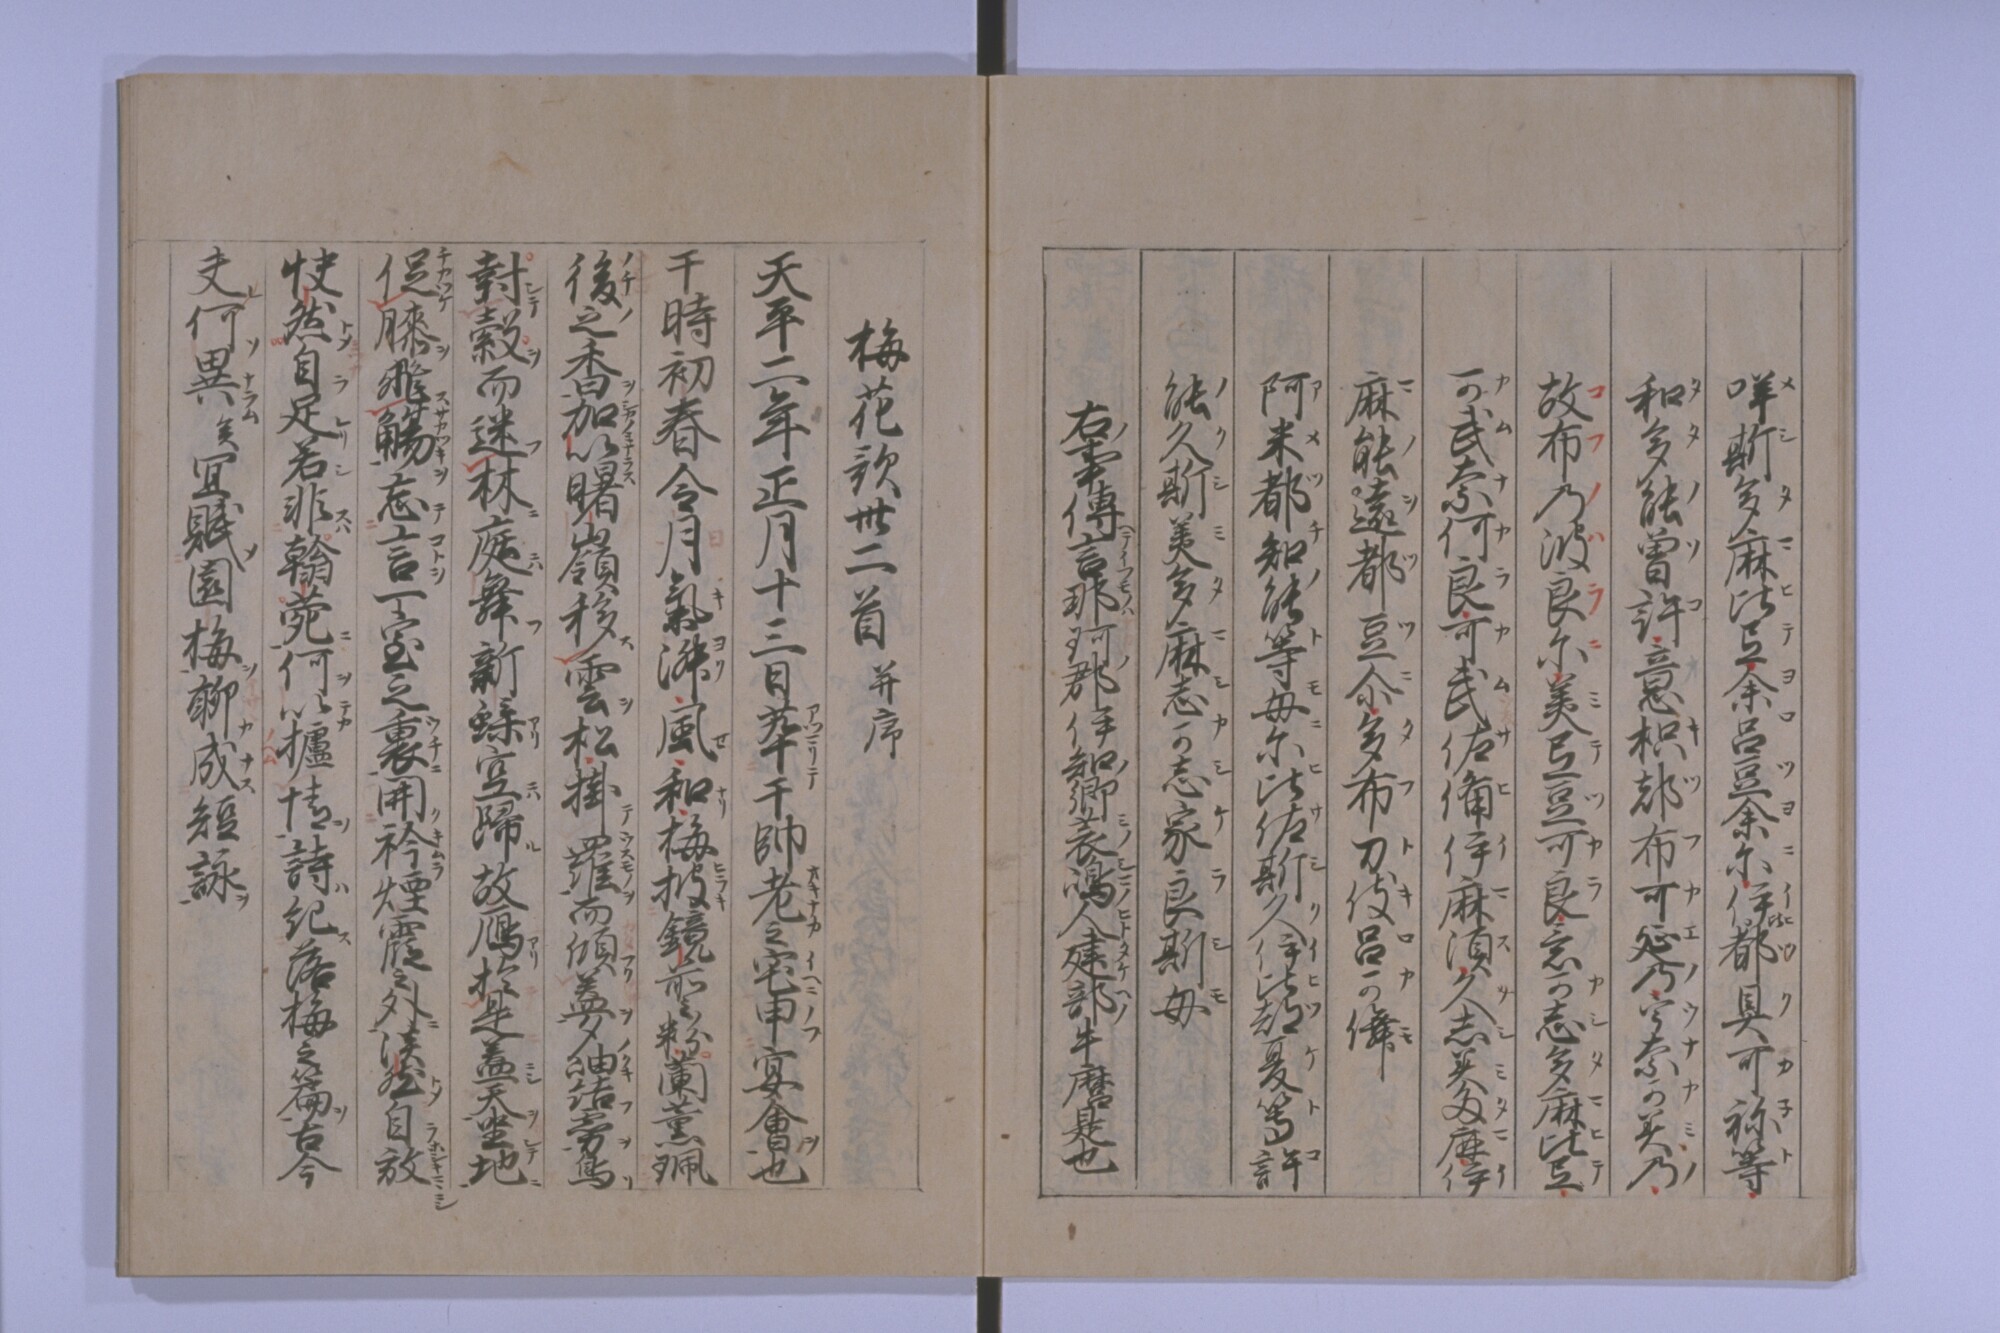 咩斯多麻比弖余呂豆余尓伊都具可祢等
和多能曽許意枳都布可延乃宇奈可美乃
故布乃波良尓美弖豆可良意可志多麻比弖
可武奈何良可武佐備伊麻須久志美多麻伊
麻能遠都豆尒多布刀伎呂可儛
阿米都知能等毎尓比佐斯久伊比都夏等許
能久斯美多麻志可志家良斯毎
右事傳言那珂郡伊知郷蓑嶋人建部牛麿是也
梅花歌卅二首 并序
天平二年正月十三日萃于帥老之宅申宴會也
于時初春令月氣淋風和梅披鏡前之粉蘭薫珮
後之香加以曙嶺移雲松掛羅而傾盖夕岫結霧鳥
封縠而迷林庭舞新蝶空歸故鴈於是盖天坐地
促膝飛觴忘言一室之裏開衿煙霞之外淡然自放
快然自足若非翰苑何以攄情詩紀落梅之篇古今
夫何異矣宜賦園梅聊成短詠